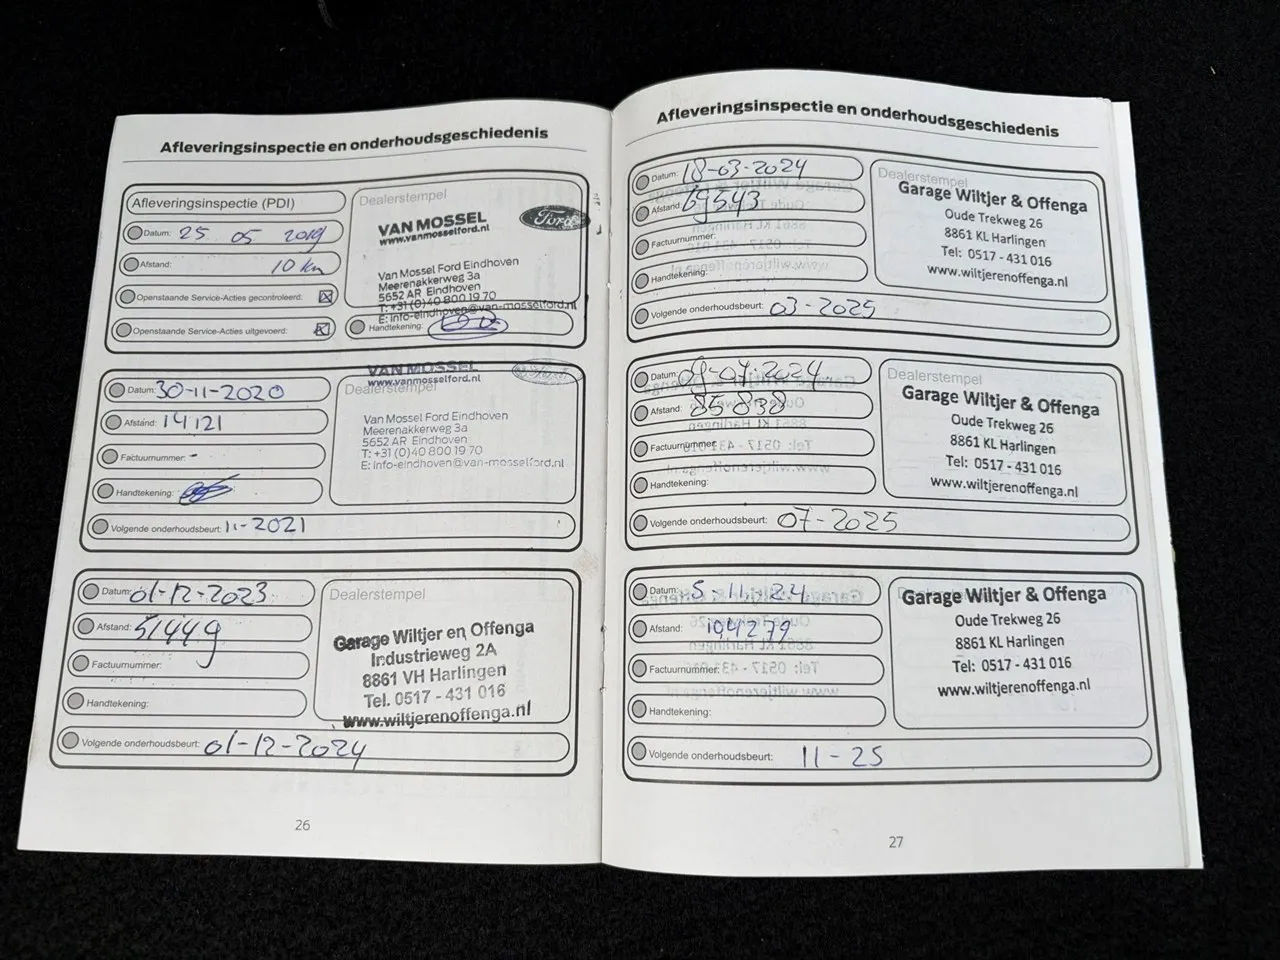 Afleveringsinspectie en onderhoudsgeschiedenis
Afleveringsinspectie (PDI)
Datum: 25 05 2019
Afstand: 10 km
Openstaande Service-Acties gecontroleerd:
Openstaande Service-Acties uitgevoerd:
Dealerstempel
VAN MOSSEL
www.vanmosselford.nl
Ford
Van Mossel Ford Eindhoven
Meerenakkerweg 3a
5652 AR Eindhoven
T: +31 (0)40 800 19 70
E: info-eindhoven@van-mosselford.nl
Handtekening:
Datum: 30-11-2020
Afstand: 14121
Factuurnummer: -
Handtekening:
Volgende onderhoudsbeurt: 11-2021
VAN MOSSEL
www.vanmosselford.nl
Ford
Dealerstempel
Van Mossel Ford Eindhoven
Meerenakkerweg 3a
5652 AR Eindhoven
T: +31 (0)40 800 19 70
E: info-eindhoven@van-mosselford.nl
Datum: 01-12-2023
Afstand: 51449
Factuurnummer:
Handtekening:
Volgende onderhoudsbeurt: 01-12-2024
Dealerstempel
Garage Wiltjer en Offenga
Industrieweg 2A
8861 VH Harlingen
Tel. 0517 - 431 016
www.wiltjerenoffenga.nl
26
Afleveringsinspectie en onderhoudsgeschiedenis
Datum: 18-03-2024
Afstand: 69543
Factuurnummer:
Handtekening:
Volgende onderhoudsbeurt: 03-2025
Dealerstempel
Garage Wiltjer & Offenga
Oude Trekweg 26
8861 KL Harlingen
Tel: 0517 - 431 016
www.wiltjerenoffenga.nl
Datum: 09-07-2024
Afstand: 85838
Factuurnummer:
Handtekening:
Volgende onderhoudsbeurt: 07-2025
Dealerstempel
Garage Wiltjer & Offenga
Oude Trekweg 26
8861 KL Harlingen
Tel: 0517 - 431 016
www.wiltjerenoffenga.nl
Datum: 5-11-24
Afstand: 104279
Factuurnummer:
Handtekening:
Volgende onderhoudsbeurt: 11-25
Garage Wiltjer & Offenga
Oude Trekweg 26
8861 KL Harlingen
Tel: 0517 - 431 016
www.wiltjerenoffenga.nl
27